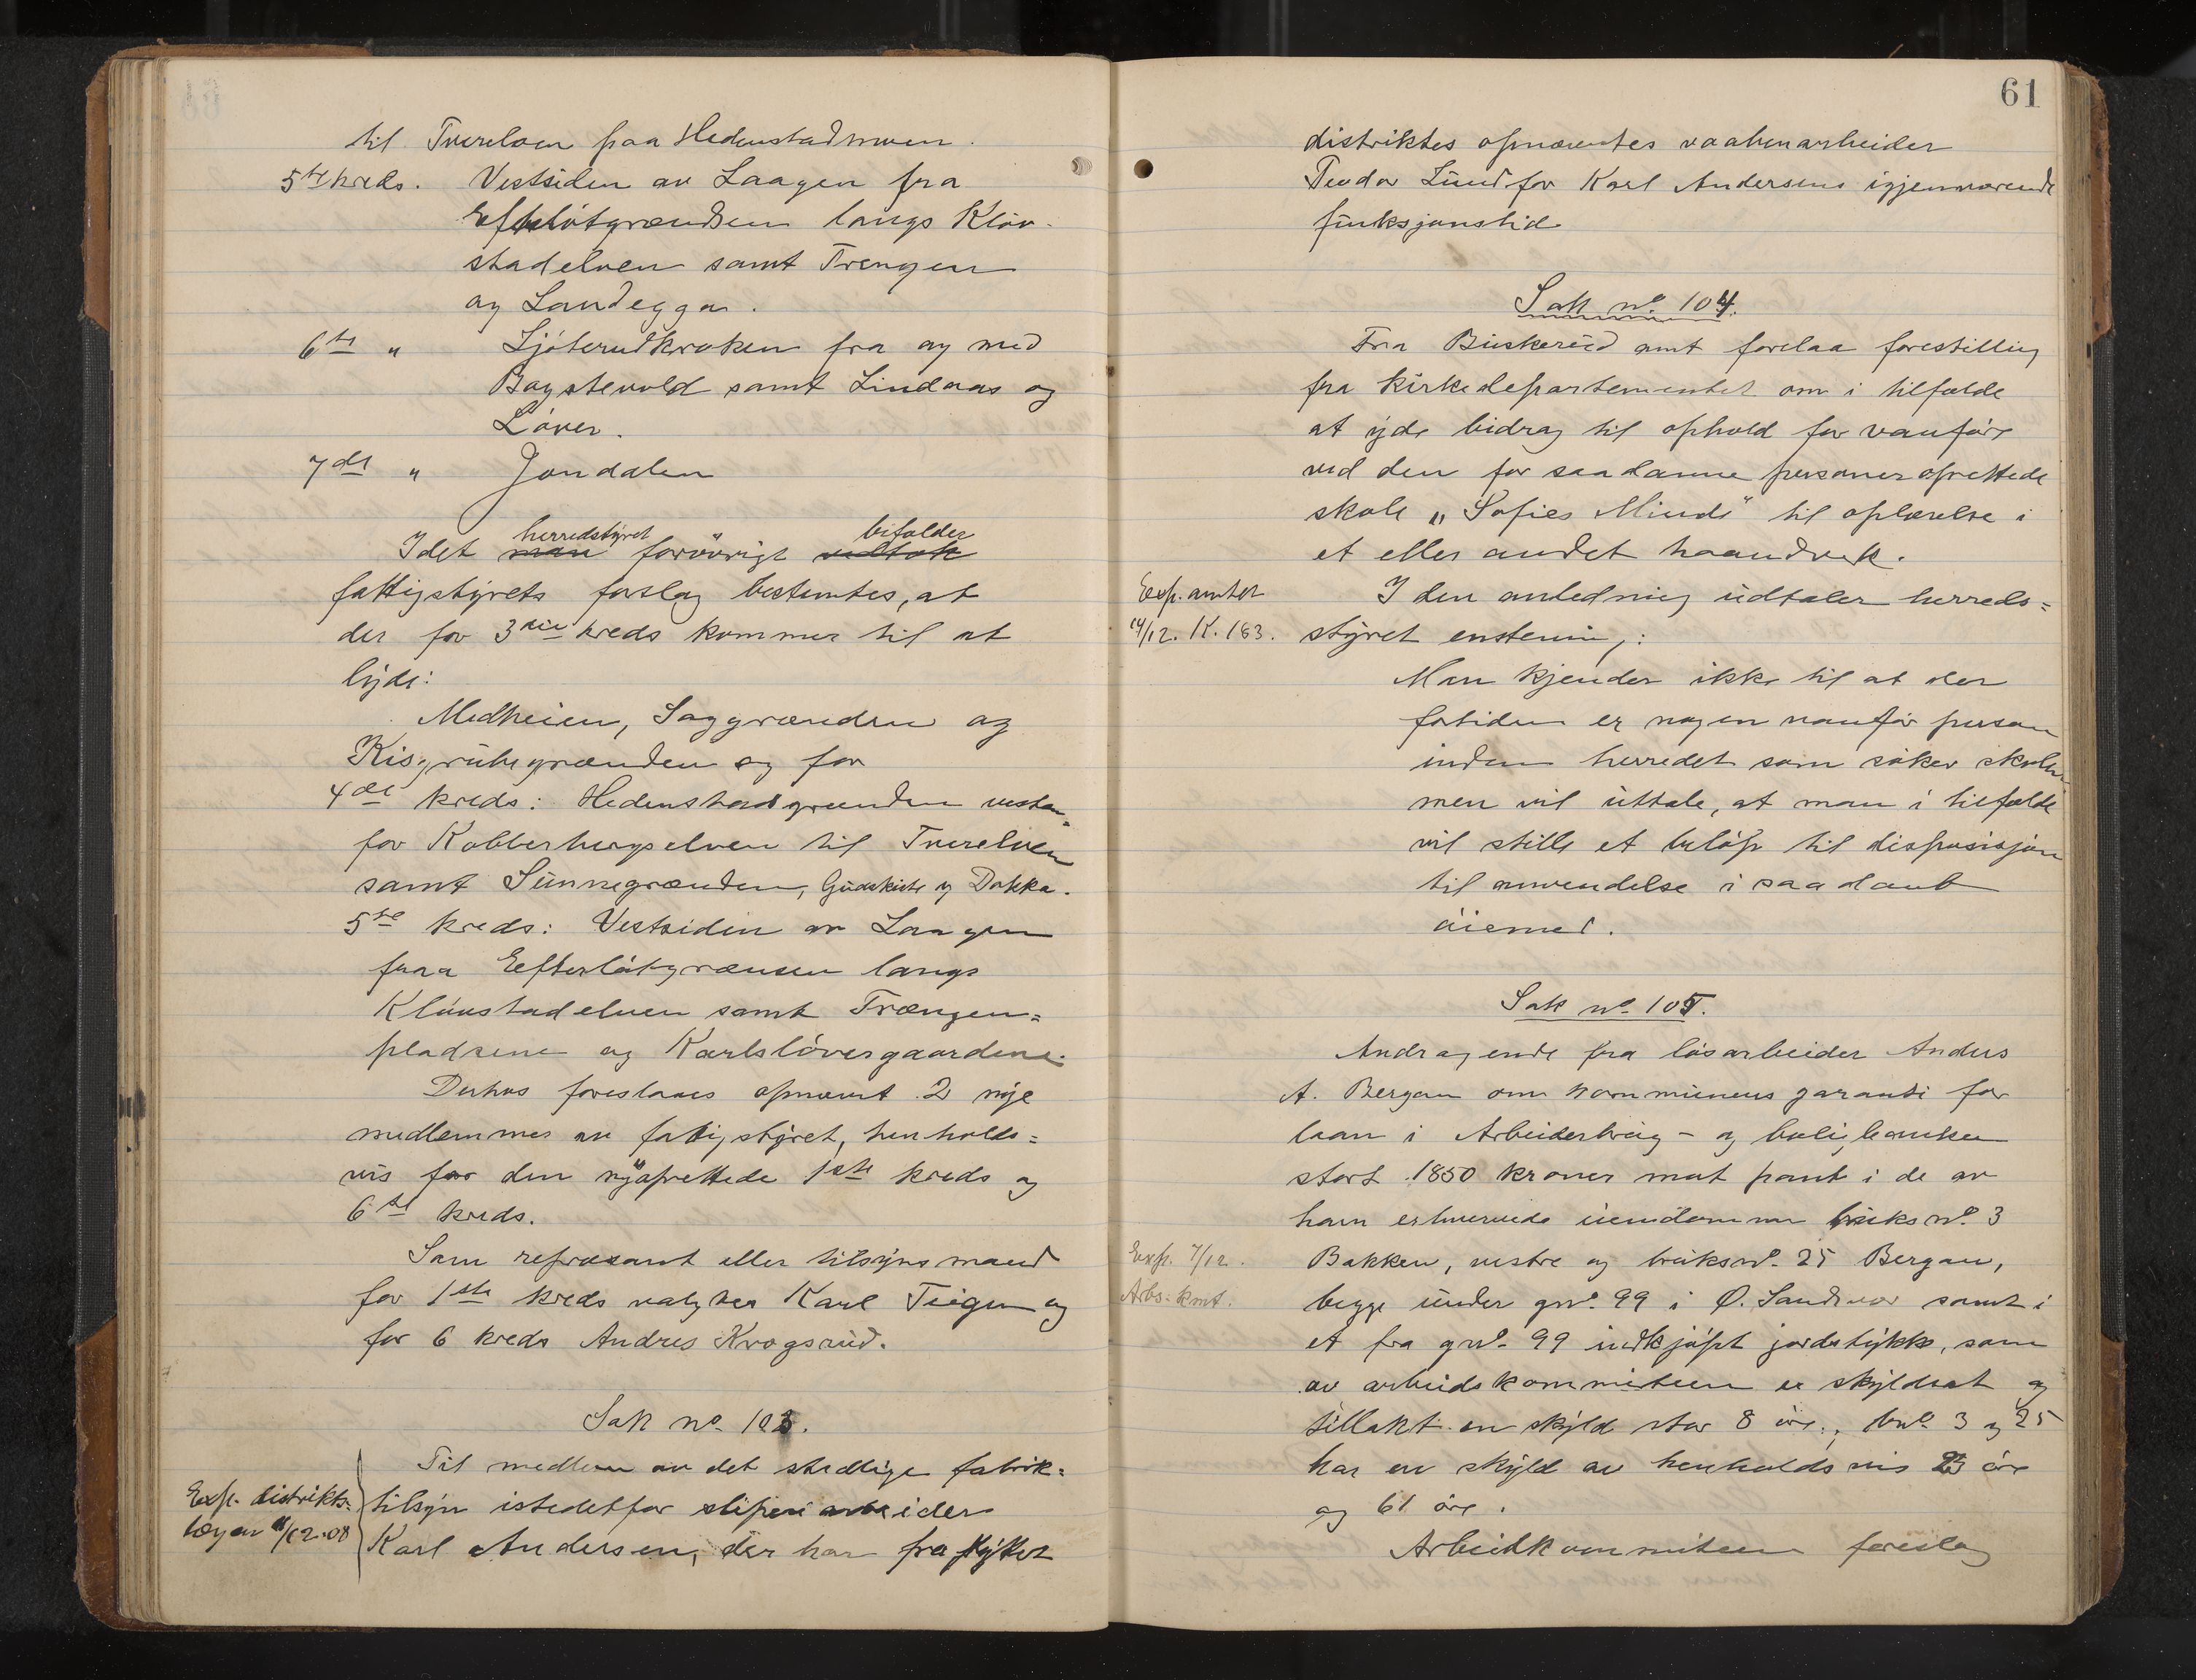 til Tverelven paa Hedenstadmoen.
5te kreds. Vestsiden av Laagen fra
Efteløtgrændsen langs Kløv-
stadelven samt Trengen
og Landeggen.
6te " Ljøterudkroken fra og med
Bagstevold samt Lindaas og
Løver.
7de " Jondalen
herredstyret befolder
Idet man forøvrigt vedtok
fattigstyrets forslag bestemtes, at
der for 3die kreds kommer til at
lyde:
Medheien, Saggrænden og
Kisgrubegrænden og for
4de kreds: Hedenstadgrænden vesten-
for Kobberbergselven til Tverelven
samt Sünnegrænden, Gudskiste og Dokka.
5te kreds: Vestsiden av Laagen
fraa Eefteløtgrænsen langs
Kløvstadelven samt Trængen=
pladsene og Karlsløversgaardene.
Derhos foreslaaes opnævnt 2 nye
medlemmer av fattigstyret, henholds=
vis for den nyoprettede 1ste kreds og
6te kreds.
Som repræsant eller tilsynsmand
for 1ste kreds valgtes Karl Teigen og
for 6 kreds Andres Krogsrud.
Sak no. 103.
Til medlem av det stedlige fabrik=
Exp. distrikts=
lægen 11/12.08
tilsyn istedetfor sliperiarbeider
Karl Andersen, der har fraflyttet
61
distriktes opnævntes vaabenarbeider
Teodor Lund for Karl Andersens igjenværende
funksjonstid
Sak no. 104.
Fra Buskerud amt forelaa forestilling
fra kirkedepartementet om i tilfælde
at yde bidrag til ophold for vanføre
ved den for saadanne personer oprettede
skole „Sofies Minde" til oplærelse i
et eller andet haandverk.
Exp. amtet
14/12. K. 163.
I den anledning udtaler herreds=
styret enstemmig:
Man kjender ikke til at der
fortiden er nogen vanfør person
inden herredet som søker skolen
men vil uttale, at man i tilfælde
vil stille et beløp til disposisjon
til anvendelse i saadant
øiemed.
Sak no. 105.
Andragende fra løsarbeider Anders
A. Bergan om kommunens garanti for
laan i Arbeiderbrug- og boligbanken
stort 1850 kroner mot pant i de av
ham erhvervede eiendommer bruksno. 3
Exp. 7/12.
Arbs.kmt.
Bakken, vestre og bruksno. 25 Bergan,
begge under gno. 99 i Ø. Sandsvær samt i
et fra gno. 99 indkjøpt jordstykke, som
av arbeidskommiteen er skyldsat og
tillakt en skyld stor 8 øre., bno. 3 og 25
har en skyld av henholdsvis 23 øre
og 61 øre.
Arbeidkommiteen foreslog